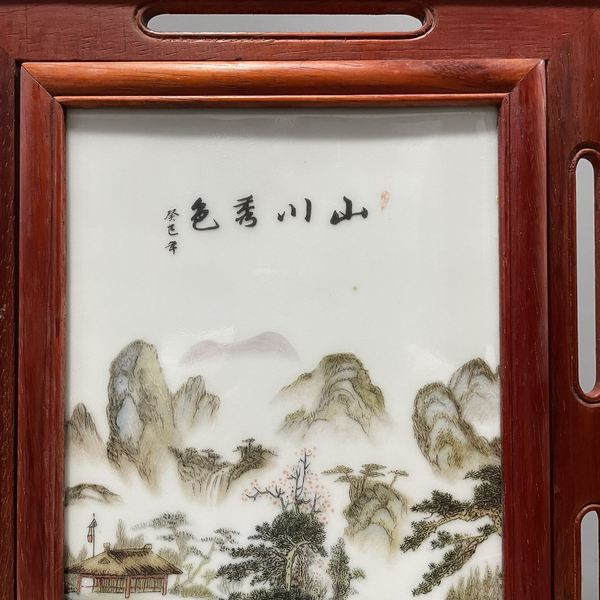 山川秀色
癸巳年